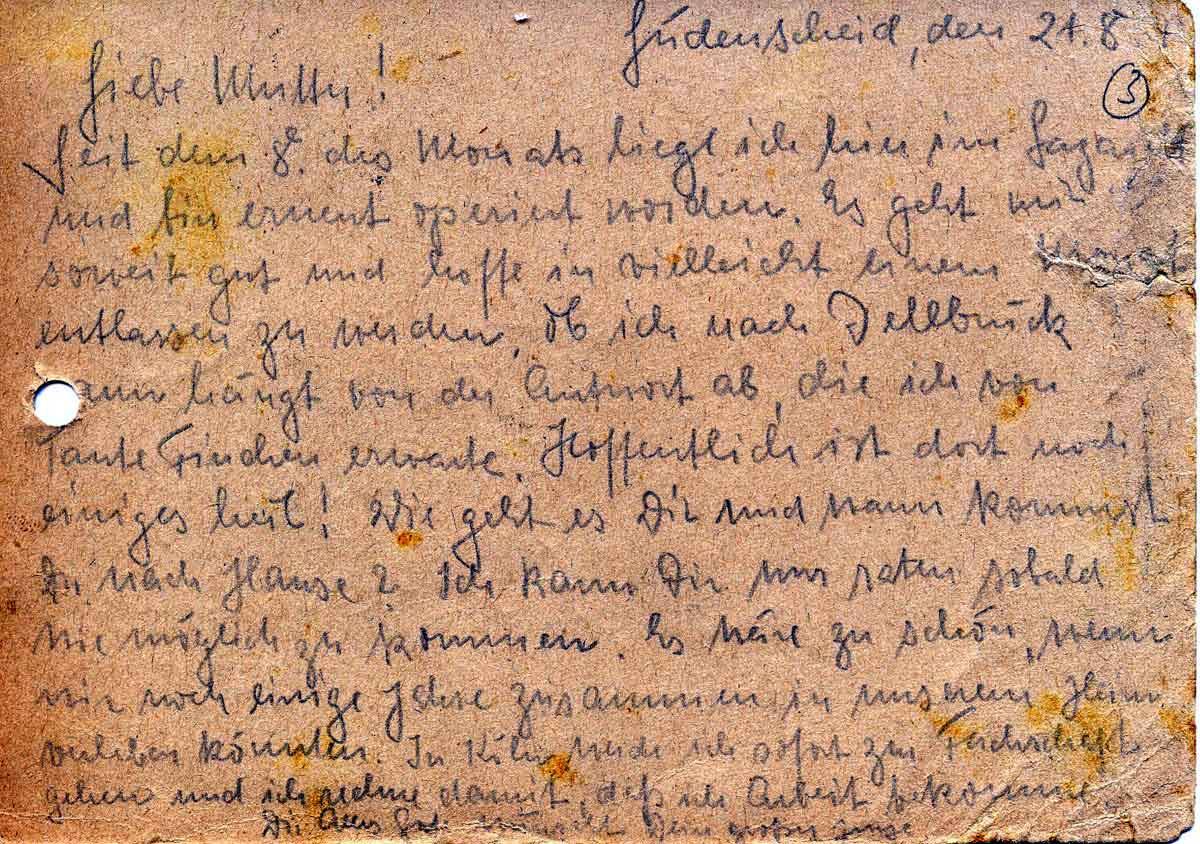 Lüdenscheid, den 21.8
3
Liebe Mutty!
Seit dem 8. des Monats liege ich hier im Lazarett
und bin erneut operiert worden. Es geht mir
soweit gut und hoffe in vielleicht einem Monat
entlassen zu werden. Ob ich nach Dellbrück
kann hängt von der Antwort ab, die ich von
Tante Finchen erwarte. Hoffentlich ist dort noch
einiges heil! Wie geht es Dir und wann kommst
Du nach Hause? Ich kann Dir nur raten sobald
wie möglich zu kommen. Es wäre zu schön, wenn
wir noch einige Jahre zusammen in unserem Heim
verleben könnten. In Köln werde ich sofort zur
gehen und ich rechne damit, daß ich Arbeit bekomme.
Dir alles Gute wünscht Dein großer Junge